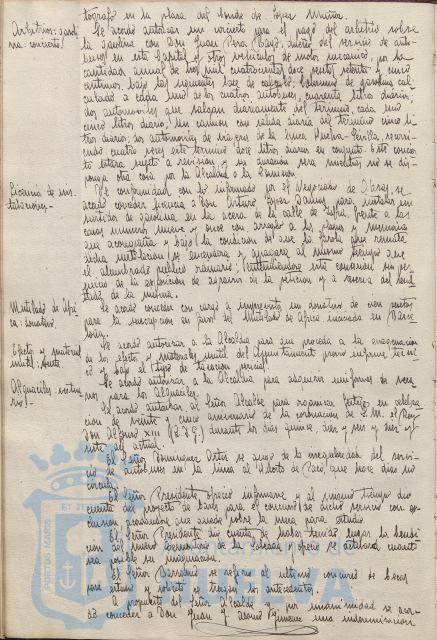 tógrafo en la plaza del Conde de López Muñoz.
Arbitrios: gasolina: concierto.
Se acordó autorizar un concierto para el pago del arbitrio sobre
la gasolina con Don Juan dueño del servicio de auto-
buses en esta Capital y otros vehículos de motor mecánico, por la
cantidad anual de tres mil cuatrocientos doce pesetas setenta y cinco
céntimos, bajo las siguientes bases de consumo de gasolina cal-
culado a cada uno de los cuatro autobuses cuarenta litros diarios;
dos automóviles que salgan diariamente del término, cada uno
cinco litros diarios; un camión con salida diaria del término cinco li-
tros diarios; dos automóviles de viajeros de la línea Huelva-Sevilla, recorri-
endo cuatro veces este término doce litros diarios en conjunto. Este concier-
to estará sujeto a revisión y su duración será mientras no se dis-
ponga otra cosa por la Alcaldía o la Comisión.
Licencia de ins-
talaciones.-
De conformidad con lo informado por el Negociado de Obras, se
acordó conceder licencia a Don Arturo López Damas para instalar un
surtidor de gasolina en la acera de la calle de frente a las
casas números nueve y once con arreglo a los planos y memoria
que acompaña y bajo la condición de que la farola que remata
dicha instalación se encenderá y apagará al mismo tiempo que
el alumbrado público ordinario, entendiéndose esta concesión sin per-
juicio de la exposición de agravios de la petición y a reserva del
de la misma.
Mutilado de Áfri-
ca: donativo.
Se acordó conceder con cargo a imprevistos un donativo de cien pesetas
para la suscripción en favor del Mutilado de África iniciada en Barce-
lona.
Efectos y material
inútil: venta
Se acordó autorizar a la Alcaldía para que proceda a la enajenación
de los efectos y materiales inútil del Ayuntamiento previo informe técni-
co y bajo el tipo de tasación pericial.
Alguaciles: vestua-
rio.-
Se acordó autorizar a la Alcaldía para adquirir uniformes de vera-
no para los Alguaciles.
Se acordó autorizar al Señor Alcalde para organizar festejos en celebra-
ción de veinte y cinco aniversario de la coronación de S. M. el Rey
Don Alfonso XIII (q. D. g.) durante los días quince, diez y seis y diez y
siete del actual.
El Señor Domínguez Ortiz se queja de la irregularidad del servi-
cio de autobuses en la línea al Puerto de Paco, que hace días no
circula.
El Señor Presidente ofreció informarse y al mismo tiempo dio
cuenta del proyecto de bases para el concurso de dicho servicio con ex-
clusiva, acordándose que quede sobre la mesa para estudio.
El Señor Presidente dio cuenta de haber tenido lugar la bendi-
ción del nuevo Cementerio de La Soledad y ofreció se activará cuanto
sea posible su inauguración.
El Señor se refirió al último concurso de becas
para estudio y solicitó se traigan los antecedentes.
A propuesta del Señor Alcalde y por unanimidad se acor-
dó conceder a Don Juan J. Jiménez una indemnización
PORTUS MARIS
ET TERRAE
HUELVA